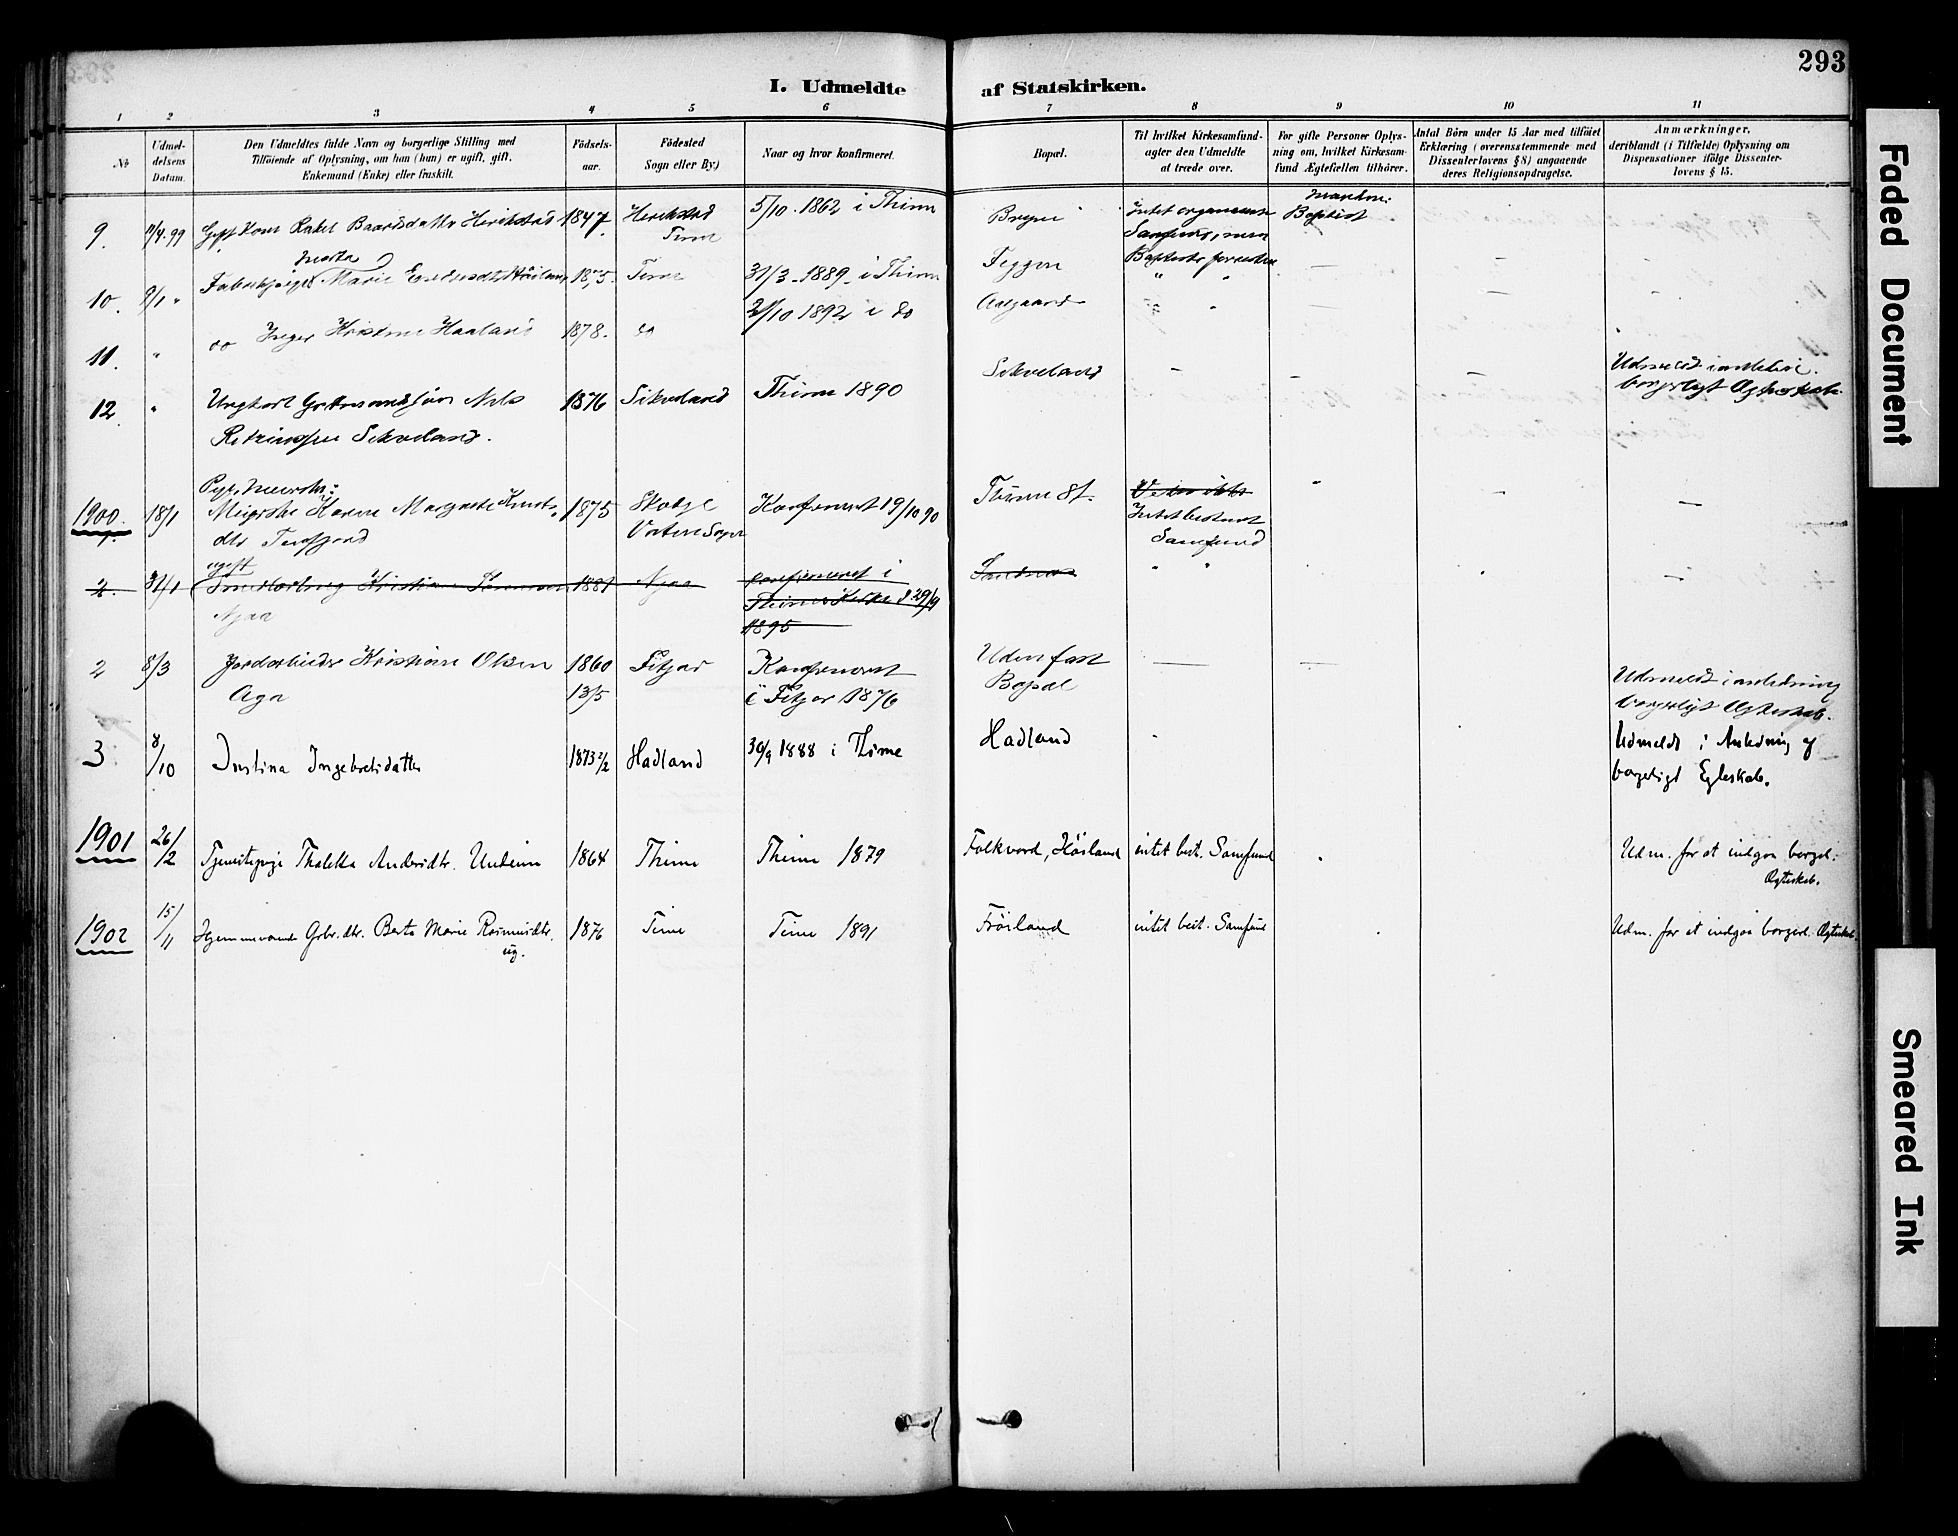 293
I. Udmeldte af Statskirken.
1 2 3 4 5 6 7 8 9 10 11
No
Udmeldelsens Datum.
Den Udmeldtes fulde Navn og borgerlige Stilling med
Tilföiende af Oplysning, om han (hun) er ugift, gift,
Enkemand (Enke) eller fraskilt.
Födselsaar.
Födested
Sogn eller By.)
Naar og hvor konfirmeret.
Bopæl.
Til hvilket Kirkesamfund-
agter den Udmeldte
at træde over.
For gifte Personer Oplys-
ning om, hvilket Kirkesam-
fund Ægtefællen tilhörer.
Antal Börn under 15 Aar med tilföiet
Erklæring (overensstemmende med
Dissenterlovens § 8) angaaende
deres Religionsopdragelse.
Anmærkninger,
deriblandt (i Tilfælde) Oplysning om
Dispensationer ifölge Dissenter-
lovens § 15.
9. 11/4.99 Gift Kone Rakel Baardsdatter Herikstad 1847. Herikstad Time 5/10. 1862 i Thime Bryne Intet Baptist
10. 9/1 " Marta Marie 1875. Time 31/3. 1889. i Thime " "
11. " do Inger Kristine Haaland 1878. do 2/10 1892 i do Aalgaard " "
12. " Ungkarl Nils
Sikveland. 1876 Sikveland Thime 1890 Sikveland – – – Udmeldt
borgerligt Ægteskab.
1900. 18/1 Meierske Karen Margrete Knuts-
dtr Tenfjord 1875 Skodje
Vatne Sogn Konfirmeret 19/10 90 Thime St. Intet bestemt
Samfund
2. 31/1 ugift
Kristian
Njaa 1881 Njaa konfirmeret i
Thime Kirke d 29/9
1895 Sandnes " "
2 8/3 Jordarbeider Kristian Olsen
Aga 1860
13/5 Fitjar Konfirmeret
i Fitjar 1876 Uden fast
Bopæl Udmeldt i anledning
borgerligt Ægteskab.
3 8/10 Justina Ingebretsdatter 1873 2/2 Hadland 30/9 1888 i Thime Hadland Udmeldt i Anledning af
borgeligt Egteskab.
1901 26/2 Tjenestepige Thalette Andersdtr. Undheim 1864 Thime Thime 1879 Folkvord, Höiland intet best. Samfund Udm. for at indgaa borgel.
Ægteskab.
1902 15/11 Hjemmeværende Gbr. dtr. Berta Marie Rasmusdtr.
ug. 1876 Time Time 1891 Fröiland intet best. Samfund Udm. for at indgaa borgerl. Ægteskab.
Faded Document
Smeared Ink